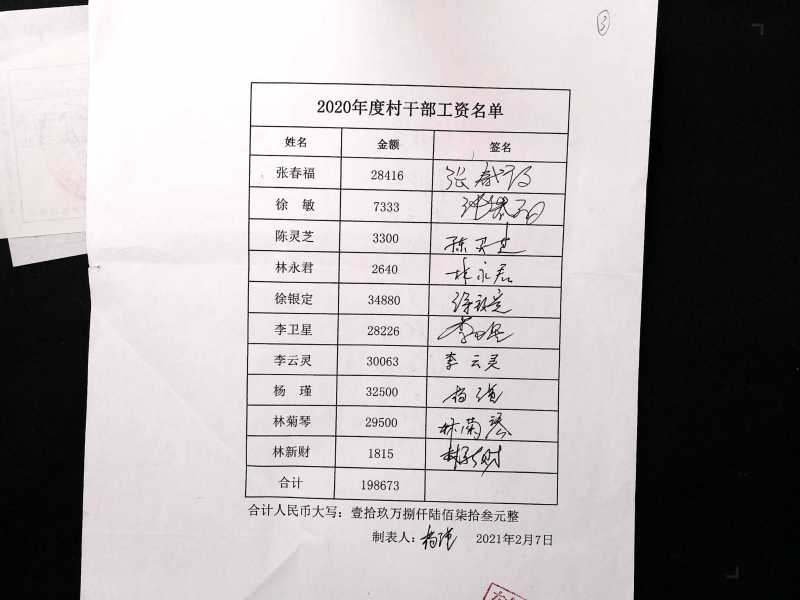 3
2020年度村干部工资名单
姓名 金额 签名
张春福 28416 张春福
徐 敏 7333
陈灵芝 3300 陈灵芝
林永君 2640 林永君
徐银定 34880 徐银定
李卫星 28226 李卫星
李云灵 30063 李云灵
杨 瑾 32500 杨瑾
林菊琴 29500 林菊琴
林新财 1815 林新财
合计 198673
合计人民币大写：壹拾玖万捌仟陆佰柒拾叁元整
制表人：杨瑾 2021年2月7日